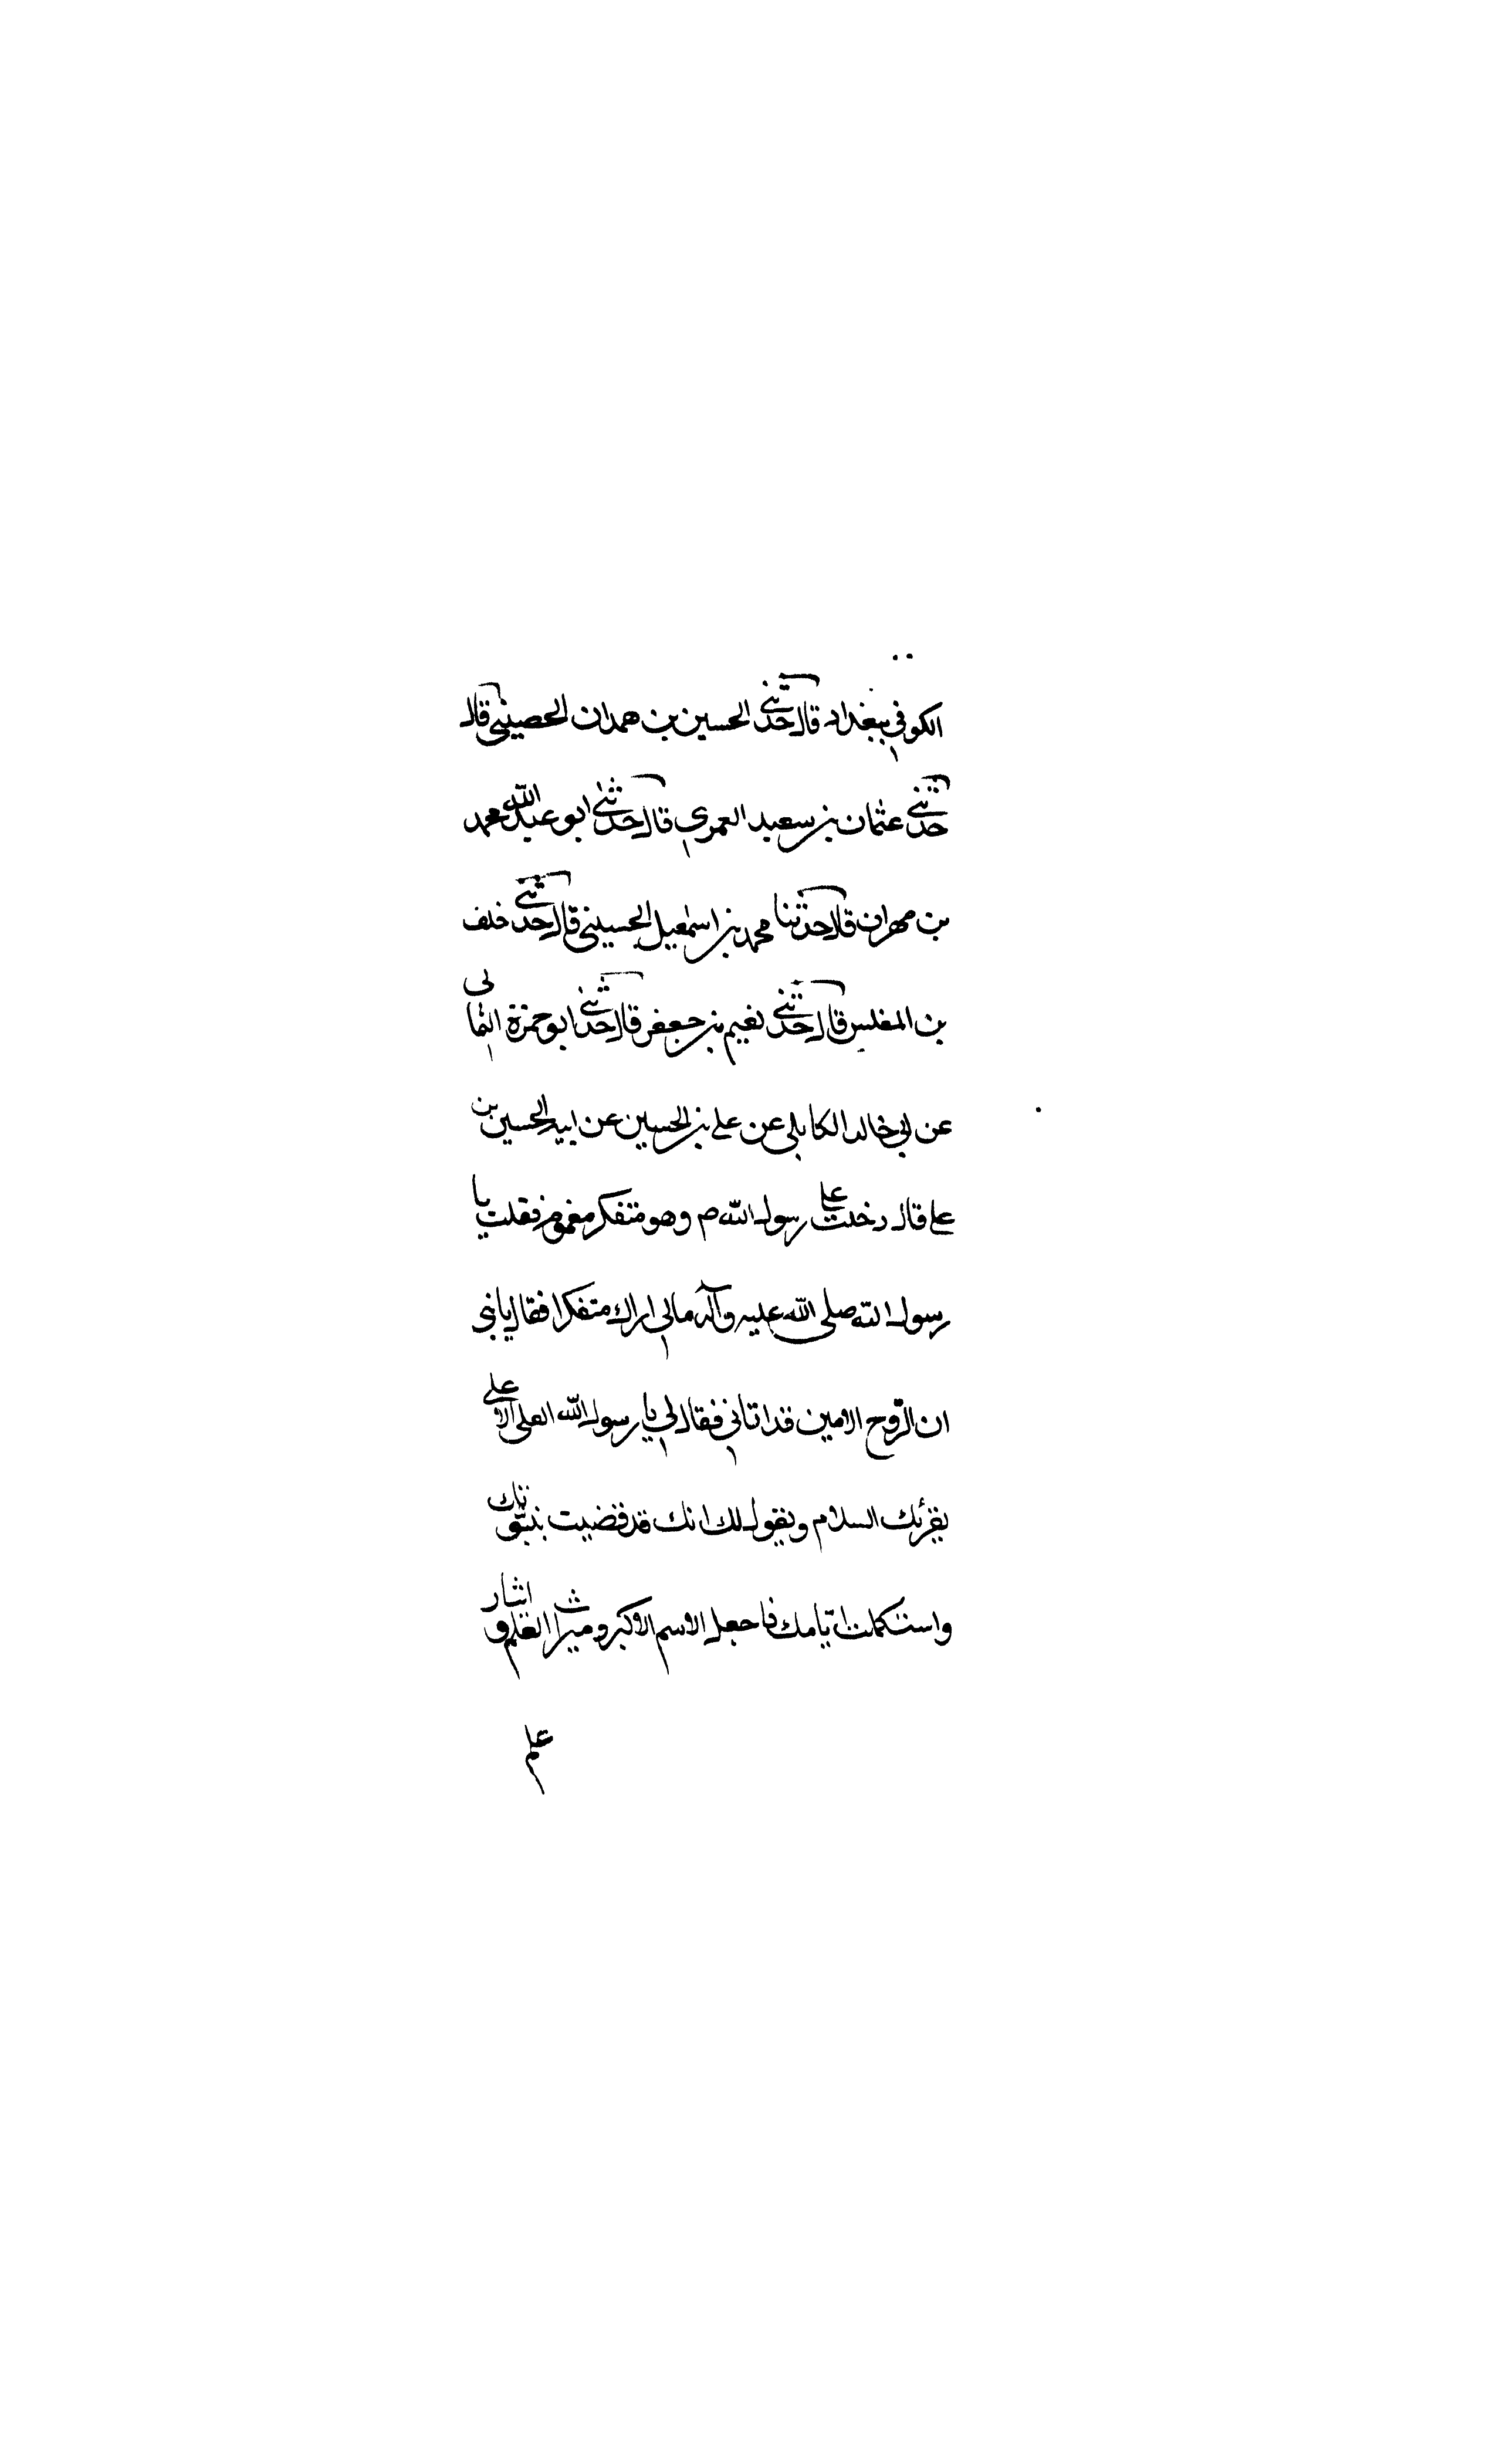 الكوفي ببغداد قال حدثني الحسين بن همدان الحصيني قال
حدثني عثمان بن سعيد العمري قال حدثني ابو عبد الله محمد
بن مهران قال حدثنا محمد بن اسمعيل الحسيني قال حدثني خلف
بن المفلس قال حدثني نعيم بن جعفر قال حدثني ابو حمزة الثمالي
عن ابي خالد الكابلي عن علي بن الحسين عن ابيه الحسين بن
علي قال دخلت على رسول الله ص وهو متفكر مغموم فقلت يا
رسول الله صلى الله عليه وآله مالي اراك متفكرا فقال يا بني
ان الروح الامين قد اتاني فقال لي يا رسول الله العلي الاعلى
يقرئك السلام ويقول لك انك قد قضيت نبوتك
واستكملت ايامك فاجعل الاسم الاكبر وميراث العلم واثار
علم